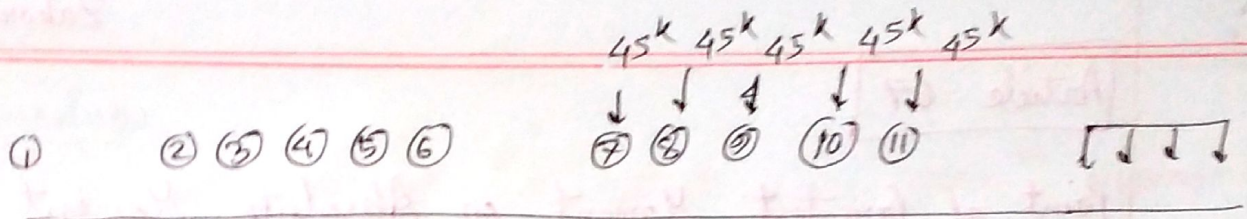 45ᵏ 45ᵏ 45ᵏ 45ᵏ 45ᵏ
① ② ③ ④ ⑤ ⑥ ⑦ ⑧ ⑨ ⑩ ⑪